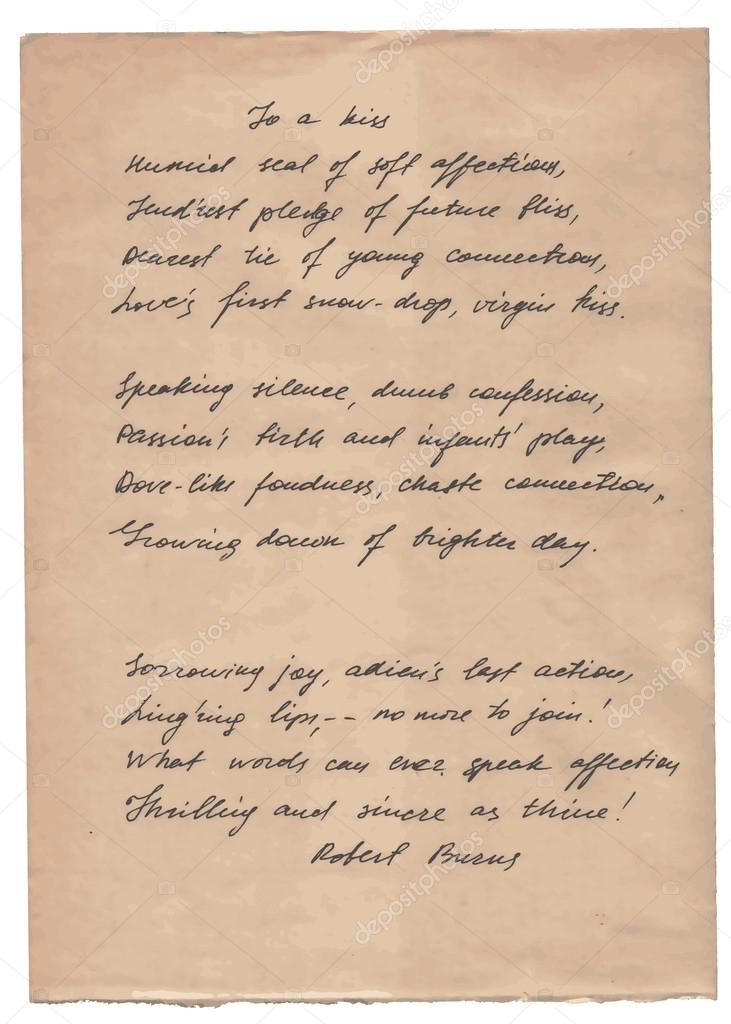 To a kiss
Humid seal of soft affections,
Tend'rest pledge of future bliss,
Dearest tie of young connections,
Love's first snow-drop, virgin kiss.
Speaking silence, dumb confession,
Passion's birth and infants' play,
Dove-like fondness, chaste connection,
Growing dawn of brighter day.
Sorrowing joy, adieu's last action,
Ling'ring lips, -- no more to join!
What words can ever speak affection
Thrilling and sincre as thine!
Robert Burns
depositphotos